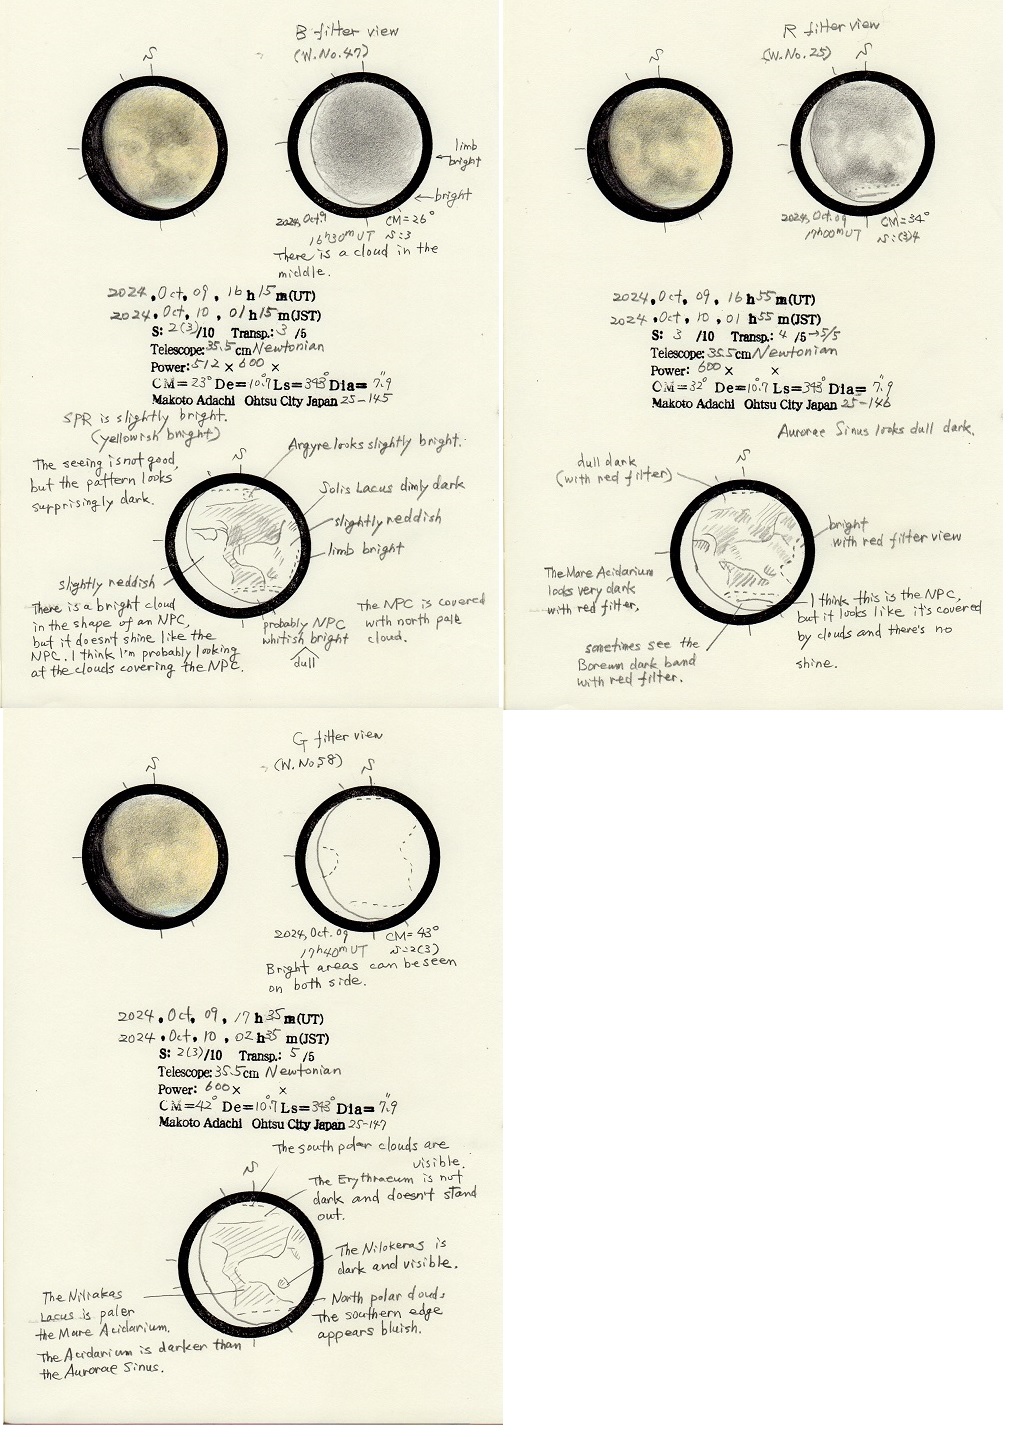 B filter view
(W.No.47)
S
limb
bright
bright
2024, Oct 9
CM=26°
16h30mUT
S:3
There is a cloud in the
middle.
2024, Oct, 09, 16 h 15 m(UT)
2024, Oct, 10, 01 h 15 m(JST)
S: 2(3)/10 Transp.: 3 /5
Telescope: 35.5 cm Newtonian
Power: 512 × 600 ×
CM=23° De=10.°7 Ls=343° Dia=7."9
Makoto Adachi Ohtsu City Japan 25-145
SPR is slightly bright.
(yellowish bright)
The seeing is not good,
but the pattern looks
surprisingly dark.
S
Argyre looks slightly bright.
Solis Lacus dimly dark
slightly reddish
limb bright
slightly reddish
There is a bright cloud
in the shape of an NPC,
but it doesnt shine like the
NPC. I think I'm probably looking
at the clouds covering the NPC.
probably NPC
whitish bright
dull
The NPC is covered
with north pale
cloud.
R filter view
(W.No.25)
S
S
2024, Oct. 09
CM=34°
17h00mUT
S:(3)4
2024, Oct, 09, 16 h 55 m(UT)
2024, Oct, 10, 01 h 55 m(JST)
S: 3 /10 Transp.: 4 /5→5/5
Telescope: 35.5 cm Newtonian
Power: 600 × ×
CM=32° De=10.°7 Ls=343° Dia=7."9
Makoto Adachi Ohtsu City Japan 25-146
Aurorae Sinus looks dull dark.
dull dark
(with red filter)
S
bright
with red filter view
The Mare Acidarium
looks very dark
with red filter.
I think this is the NPC,
but it looks like it's covered
by clouds and there's no
shine.
sometimes see the
Boreum dark band
with red filter.
G filter view
(W.No58)
S
S
2024, Oct. 09
CM=43°
17h40mUT
S:2(3)
Bright areas can be seen
on both side.
2024, Oct, 09, 17 h 35 m(UT)
2024, Oct, 10, 02 h 35 m(JST)
S: 2(3)/10 Transp.: 5 /5
Telescope: 35.5 cm Newtonian
Power: 600 × ×
CM=42° De=10.°7 Ls=343° Dia=7."9
Makoto Adachi Ohtsu City Japan 25-147
The south polar clouds are
visible.
S
The Erythraeum is not
dark and doesn't stand
out.
The Nilokeras is
dark and visible.
The Niliakas
Lacus is paler
the Mare Acidarium.
The Acidarium is darker than
the Aurorae Sinus.
North polar clouds
The southern edge
appears bluish.